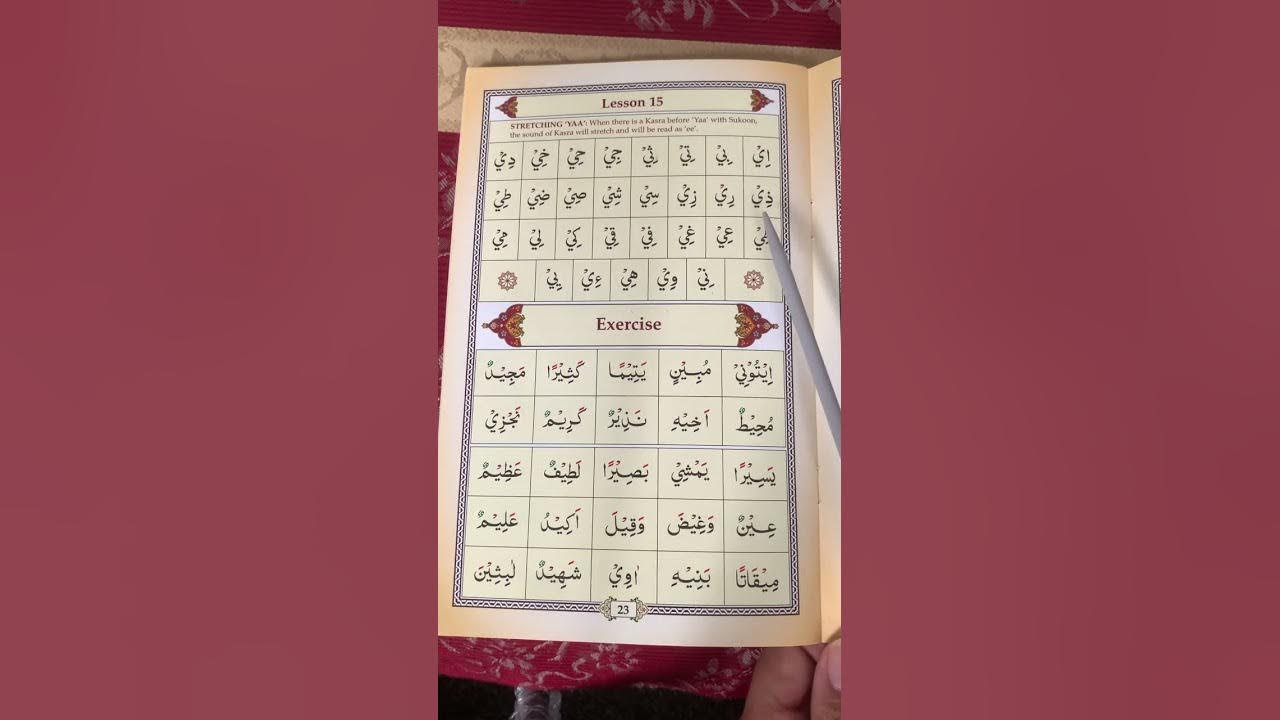 Lesson 15
STRETCHING 'YAA': When there is a Kasra before 'Yaa' with Sukoon,
the sound of Kasra will stretch and will be read as 'ee'.
اِيْ بِيْ تِيْ ثِيْ جِيْ حِيْ خِيْ دِيْ
ذِيْ رِيْ زِيْ سِيْ شِيْ صِيْ ضِيْ طِيْ
عِيْ غِيْ فِيْ قِيْ كِيْ لِيْ مِيْ
نِيْ وِيْ هِيْ ءِيْ يِيْ
Exercise
اِيْتُوْنِيْ مُبِيْنٍ يَتِيْمًا كَثِيْرًا مَجِيْدٌ
مُحِيْطٌ اَخِيْهِ نَذِيْرٌ كَرِيْمٌ نَجْزِيْ
يَسِيْرًا يَمْشِيْ بَصِيْرًا لَطِيْفٌ عَظِيْمٌ
عِيْنٌ وَغِيْضَ وَقِيْلَ اَكِيْدُ عَلِيْمٌ
مِيْقَاتًا بَنِيْهِ اٰوِيْ شَهِيْدٌ لٰبِثِيْنَ
23